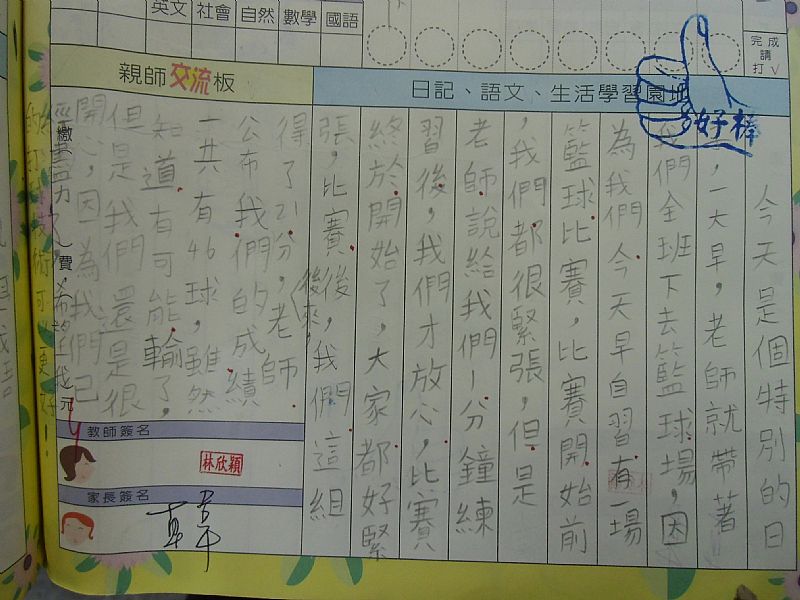 英文 社會 自然 數學 國語
完成請打✓
親師交流板
日記、語文、生活學習園地
好棒
今天是個特別的日
，一大早，老師就帶著
我們全班下去籃球場，因
為我們今天早自習有一場
籃球比賽，比賽開始前
，我們都很緊張，但是
老師說給我們1分鐘練
習後，我們才放心，比賽
終於開始了，大家都好緊
張，比賽後，我們這組
後來，
得了21分，老師
公布我們的成績
一共有46球，雖然
知道有可能輸了，
但是我們還是很
開心，因為我們已
經盡力了~，希望我
繳 費 元
的打球技術可以更好！
教師簽名
林欣穎
家長簽名